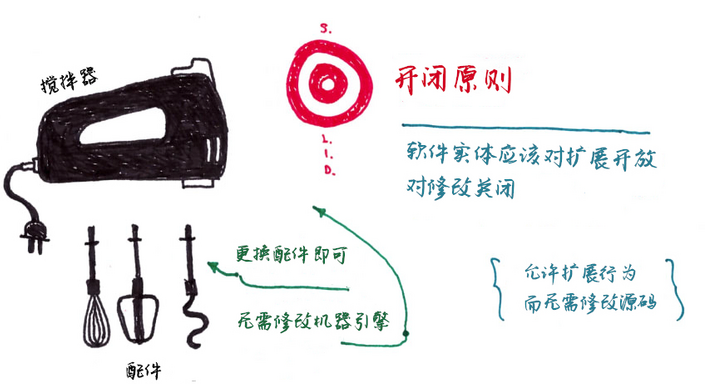 搅拌器
S.
L.
I.
D.
开闭原则
软件实体应该对扩展开放
对修改关闭
更换配件即可
无需修改机器引擎
允许扩展行为
而无需修改源码
配件